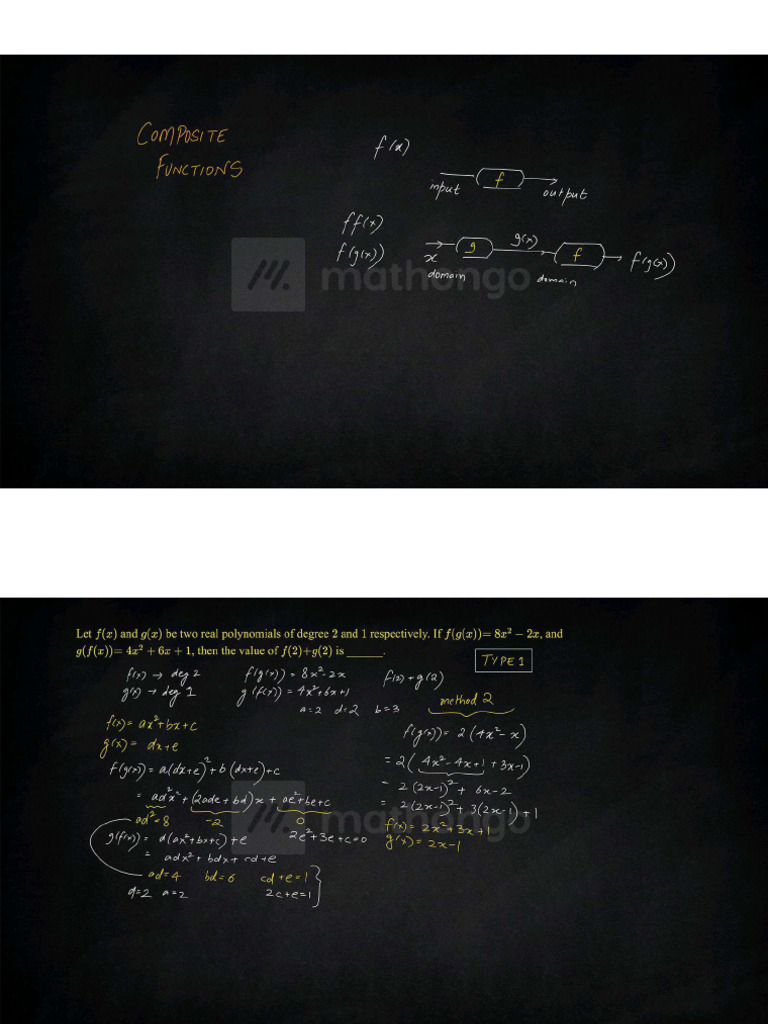 COMPOSITE
FUNCTIONS
f(x)
input f output
ff(x)
f(g(x))
x g g(x) f f(g(x))
domain domain
mathongo
Let f(x) and g(x) be two real polynomials of degree 2 and 1 respectively. If f(g(x))= 8x² − 2x, and
g(f(x))= 4x² + 6x + 1, then the value of f(2)+g(2) is ______.
TYPE 1
f(x) → deg 2
g(x) → deg 1
f(g(x)) = 8x²-2x
g(f(x)) = 4x²+6x+1
a=2 d=2 b=3
f(2)+g(2)
f(x)= ax²+bx+c
g(x) = dx+e
f(g(x)) = a(dx+e)²+b(dx+e)+c
= ad²x²+(2ade+bd)x + ae²+be+c
ad²=8 -2 0
g(f(x)) = d(ax²+bx+c)+e
2e²+3e+c=0
= adx²+bdx+cd+e
ad=4 bd=6 cd+e=1
d=2 a=2 2c+e=1
method 2
f(g(x))= 2(4x²-x)
= 2(4x²-4x+1+3x-1)
= 2(2x-1)²+ 6x-2
= 2(2x-1)²+3(2x-1)+1
f(x)= 2x²+3x+1
g(x)= 2x-1
mathongo